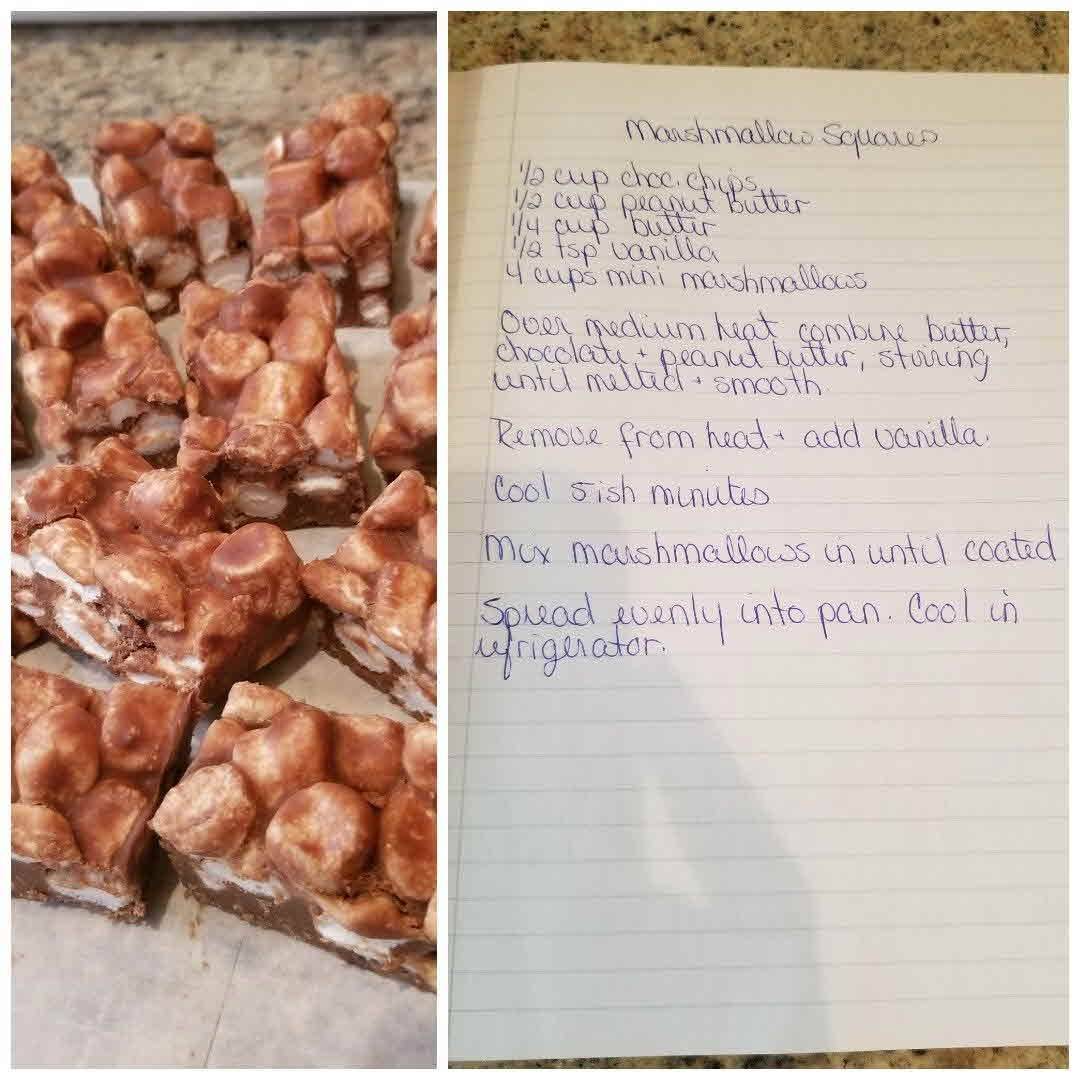 Marshmallow Squares
1/2 cup choc. chips
1/2 cup peanut butter
1/4 cup butter
1/2 tsp vanilla
4 cups mini marshmallows
Over medium heat combine butter,
chocolate + peanut butter, stirring
until melted + smooth.
Remove from head + add vanilla.
Cool 5ish minutes
Mix marshmallows in until coated
Spread evenly into pan. Cool in
refrigerator.